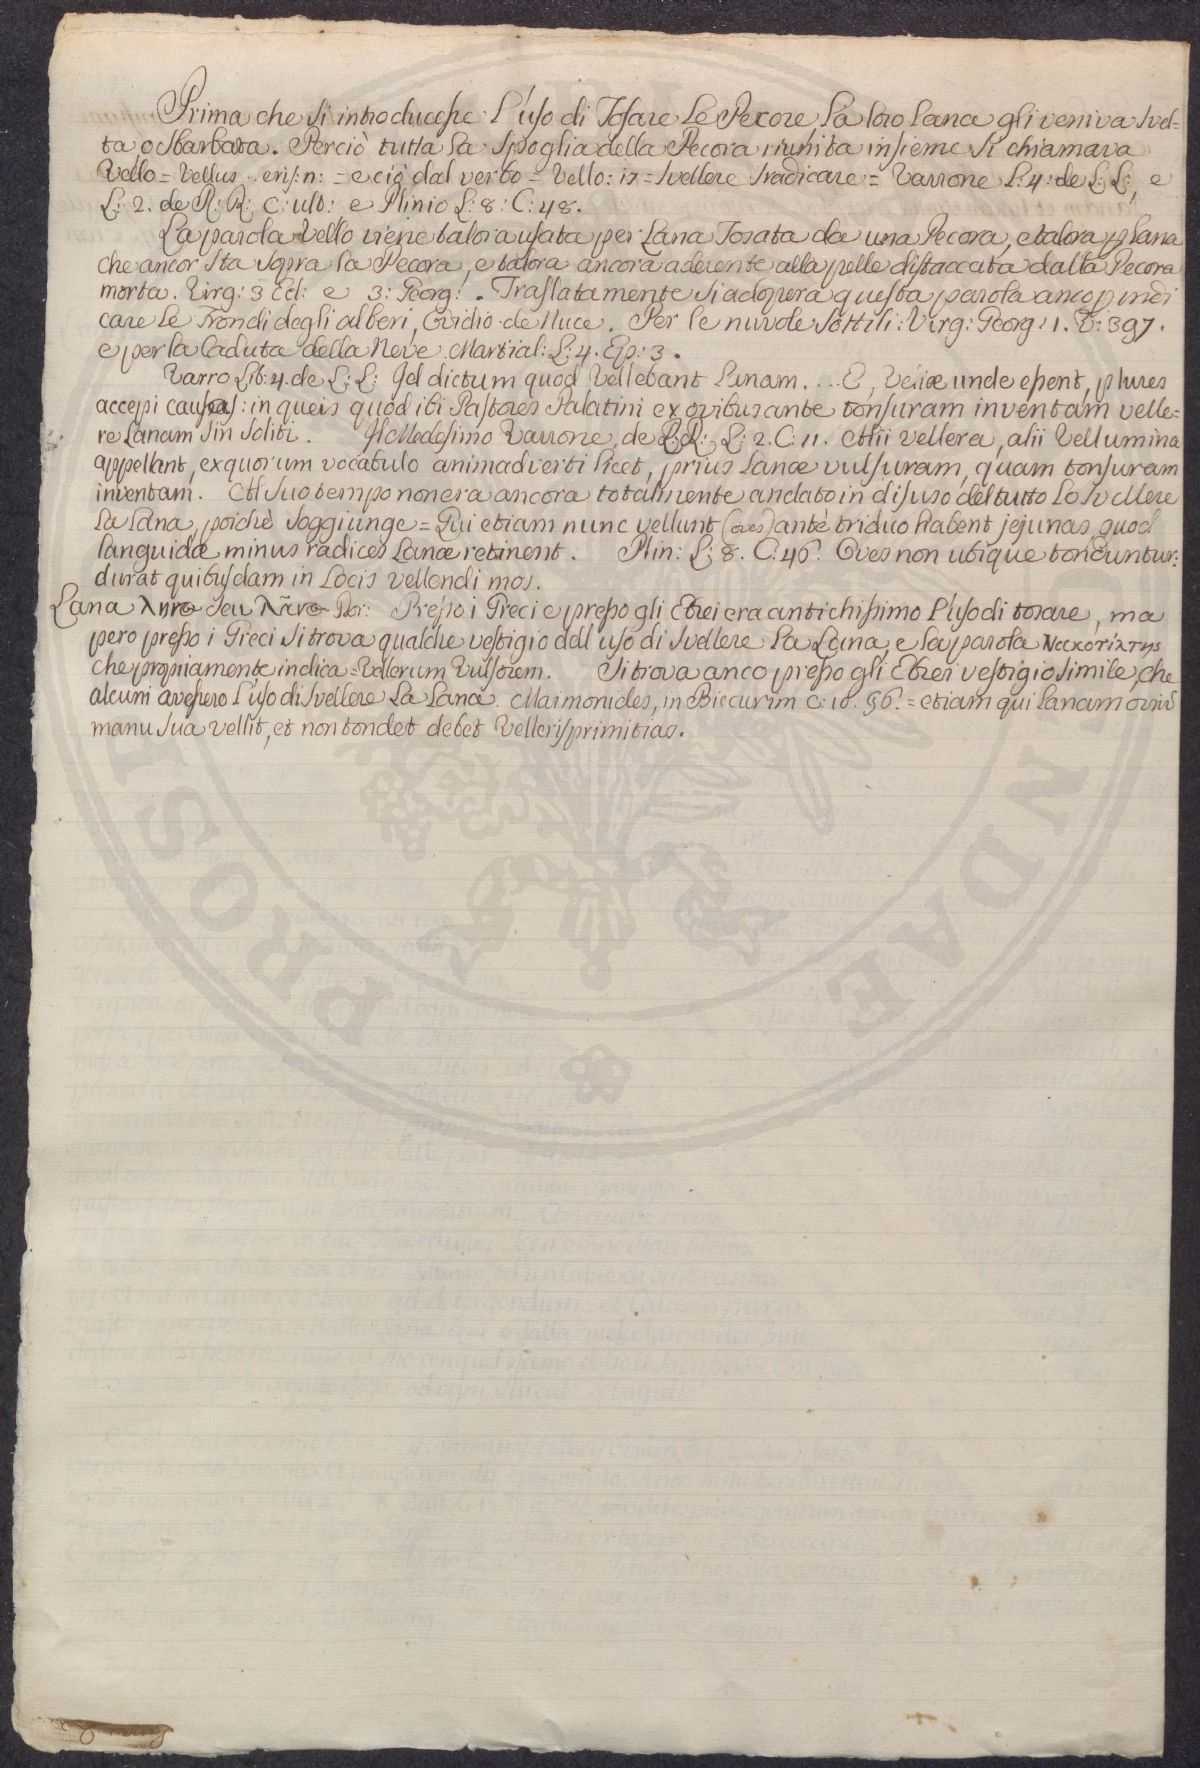 Prima che si introducesse l'uso di Tosare le Pecore la loro lana gli veniva svel-
ta o sbarbata. Perciò tutta la spoglia della Pecora riunita insieme si chiamava
Vello = Vellus .. eris: n: = e ciò dal verbo = Vello: is = svellere sradicare = Varrone L: 4: de L: L:, e
L: 2. de R: R: C: ult: e Plinio L: 8: C: 48.
La parola Vello viene talora usata per Lana Tosata da una Pecora, e talora p lana
che ancor sta sopra la Pecora, e talora ancora aderente alla pelle distaccata dalla Pecora
morta. Virg: 3 Ecl: e 3: Georg: . Traslatamente si adopera questa parola anco p indi
care le Frondi degli alberi, Ovidio de Nuce. Per le nuvole sottili: Virg: Georg: 1. V: 397.
e per la Caduta della Neve Martial: L: 4. Ep: 3.
Varro Lib: 4. de L: L: Id dictum quod Vellebant Lanam. ... E, Veliæ unde essent, plures
accepi causas: in queis quod ibi Pastores Palatini ex ovibus ante tonsuram inventam velle=
re Lanam sin soliti. Il Medesimo Varrone, de R: R: L: 2. C: 11. Alii vellera, alii Vellumina
appellant, ex quorum vocabulo animadverti licet, prius Lanæ vulsuram, quam tonsuram
inventam. Al suo tempo non era ancora totalmente andato in disuso del tutto lo svellere
la Lana, poichè soggiunge = Qui etiam nunc vellunt (oves) ante triduo habent jejunas, quod
languidæ minus radices Lanæ retinent. Plin: L: 8. C: 46. Oves non ubique tonduntur:
durat quibusdam in Locis vellendi mos.
Lana ληνο seu λᾶνο Dor: Presso i Greci e presso gli Ebrei era antichissimo l'uso di tosare, ma
pero presso i Greci si trova qualche vestigio dell uso di svellere la Lana, e la parola
che propriamente indica = Vellerum Vulsorem. Si trova anco presso gli Ebrei vestigio simile, che
alcuni avessero l'uso di svellere la Lana. Maimonides, in Biccurim C: 10. §6. = etiam qui lanam oviū
manu sua vellit, et non tondet debet Velleris primitias.